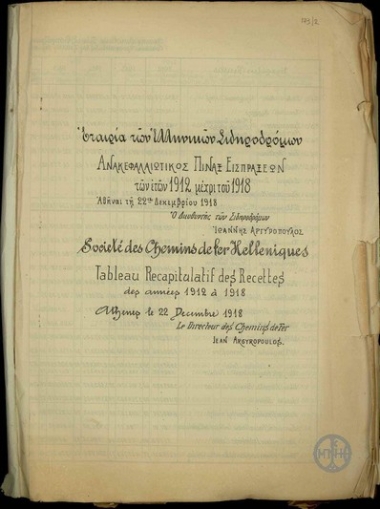 Ἑταιρία τῶν Ἑλληνικῶν Σιδηροδρόμων
ΑΝΑΚΕΦΑΛΑΙΩΤΙΚΟΣ ΠΙΝΑΞ ΕΙΣΠΡΑΞΕΩΝ
τῶν ἐτῶν 1912 μέχρι τοῦ 1918
Ἀθῆναι τῇ 22ᾳ Δεκεμβρίου 1918
Ὁ Διευθυντὴς τῶν Σιδηροδρόμων
ἸΩΑΝΝΗΣ ΑΡΓΥΡΟΠΟΥΛΟΣ
Société des Chemins de fer Helleniques
Tableau Recapitulatif des Recettes
des années 1912 à 1918
Athenes le 22 Decembre 1918
Le Directeur des Chemins de Fer
JEAN ARGYROPOULOS.